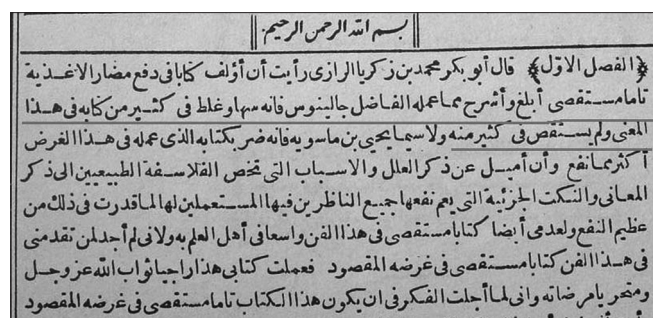 بسم الله الرحمن الرحيم
﴿الفصل الاوّل﴾ قال أبو بكر محمد بن زكريا الرازى رأيت أن أؤلف كتابا فى دفع مضار الاغذية
تاما مستقصى أبلغ وأشرح مما عمله الفاضل جالينوس فانه سها وغلط فى كثير من كتابه فى هذا
المعنى ولم يستقص فى كثير منه ولا سيما يحيى بن ماسويه فانه ضر بكتابه الذى عمله فى هذا الغرض
أكثر مما نفع وأن أميل عن ذكر العلل والاسباب التى تخص الفلاسفة الطبيعيين الى ذكر
المعانى والنكت الجزئية التى يعم نفعها جميع الناظرين فيها المستعملين لها لما قدرت فى ذلك من
عظيم النفع ولعدمى أيضا كتابا مستقصى فى هذا الفن واسعا فى أهل العلم به ولانى لم أجد لمن تقدمنى
فى هذا الفن كتابا مستقصى فى غرضه المقصود فعملت كتابى هذا راجيا ثواب الله عز وجل
ومتحريا مرضاته وانى لما أجلت الفكر فى ان يكون هذا الكتاب تاما مستقصى فى غرضه المقصود